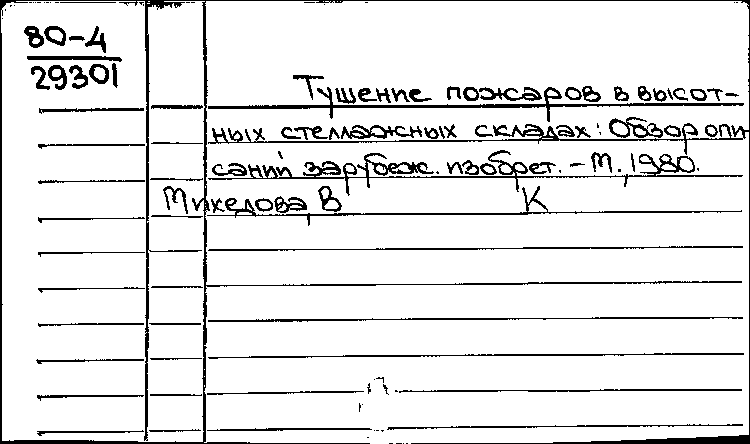 80-4
29301
Тушение пожаров в высот-
ных стеллажных складах: Обзор опи
саний зарубеж. изобрет. - М., 1980.
Михедова, В К